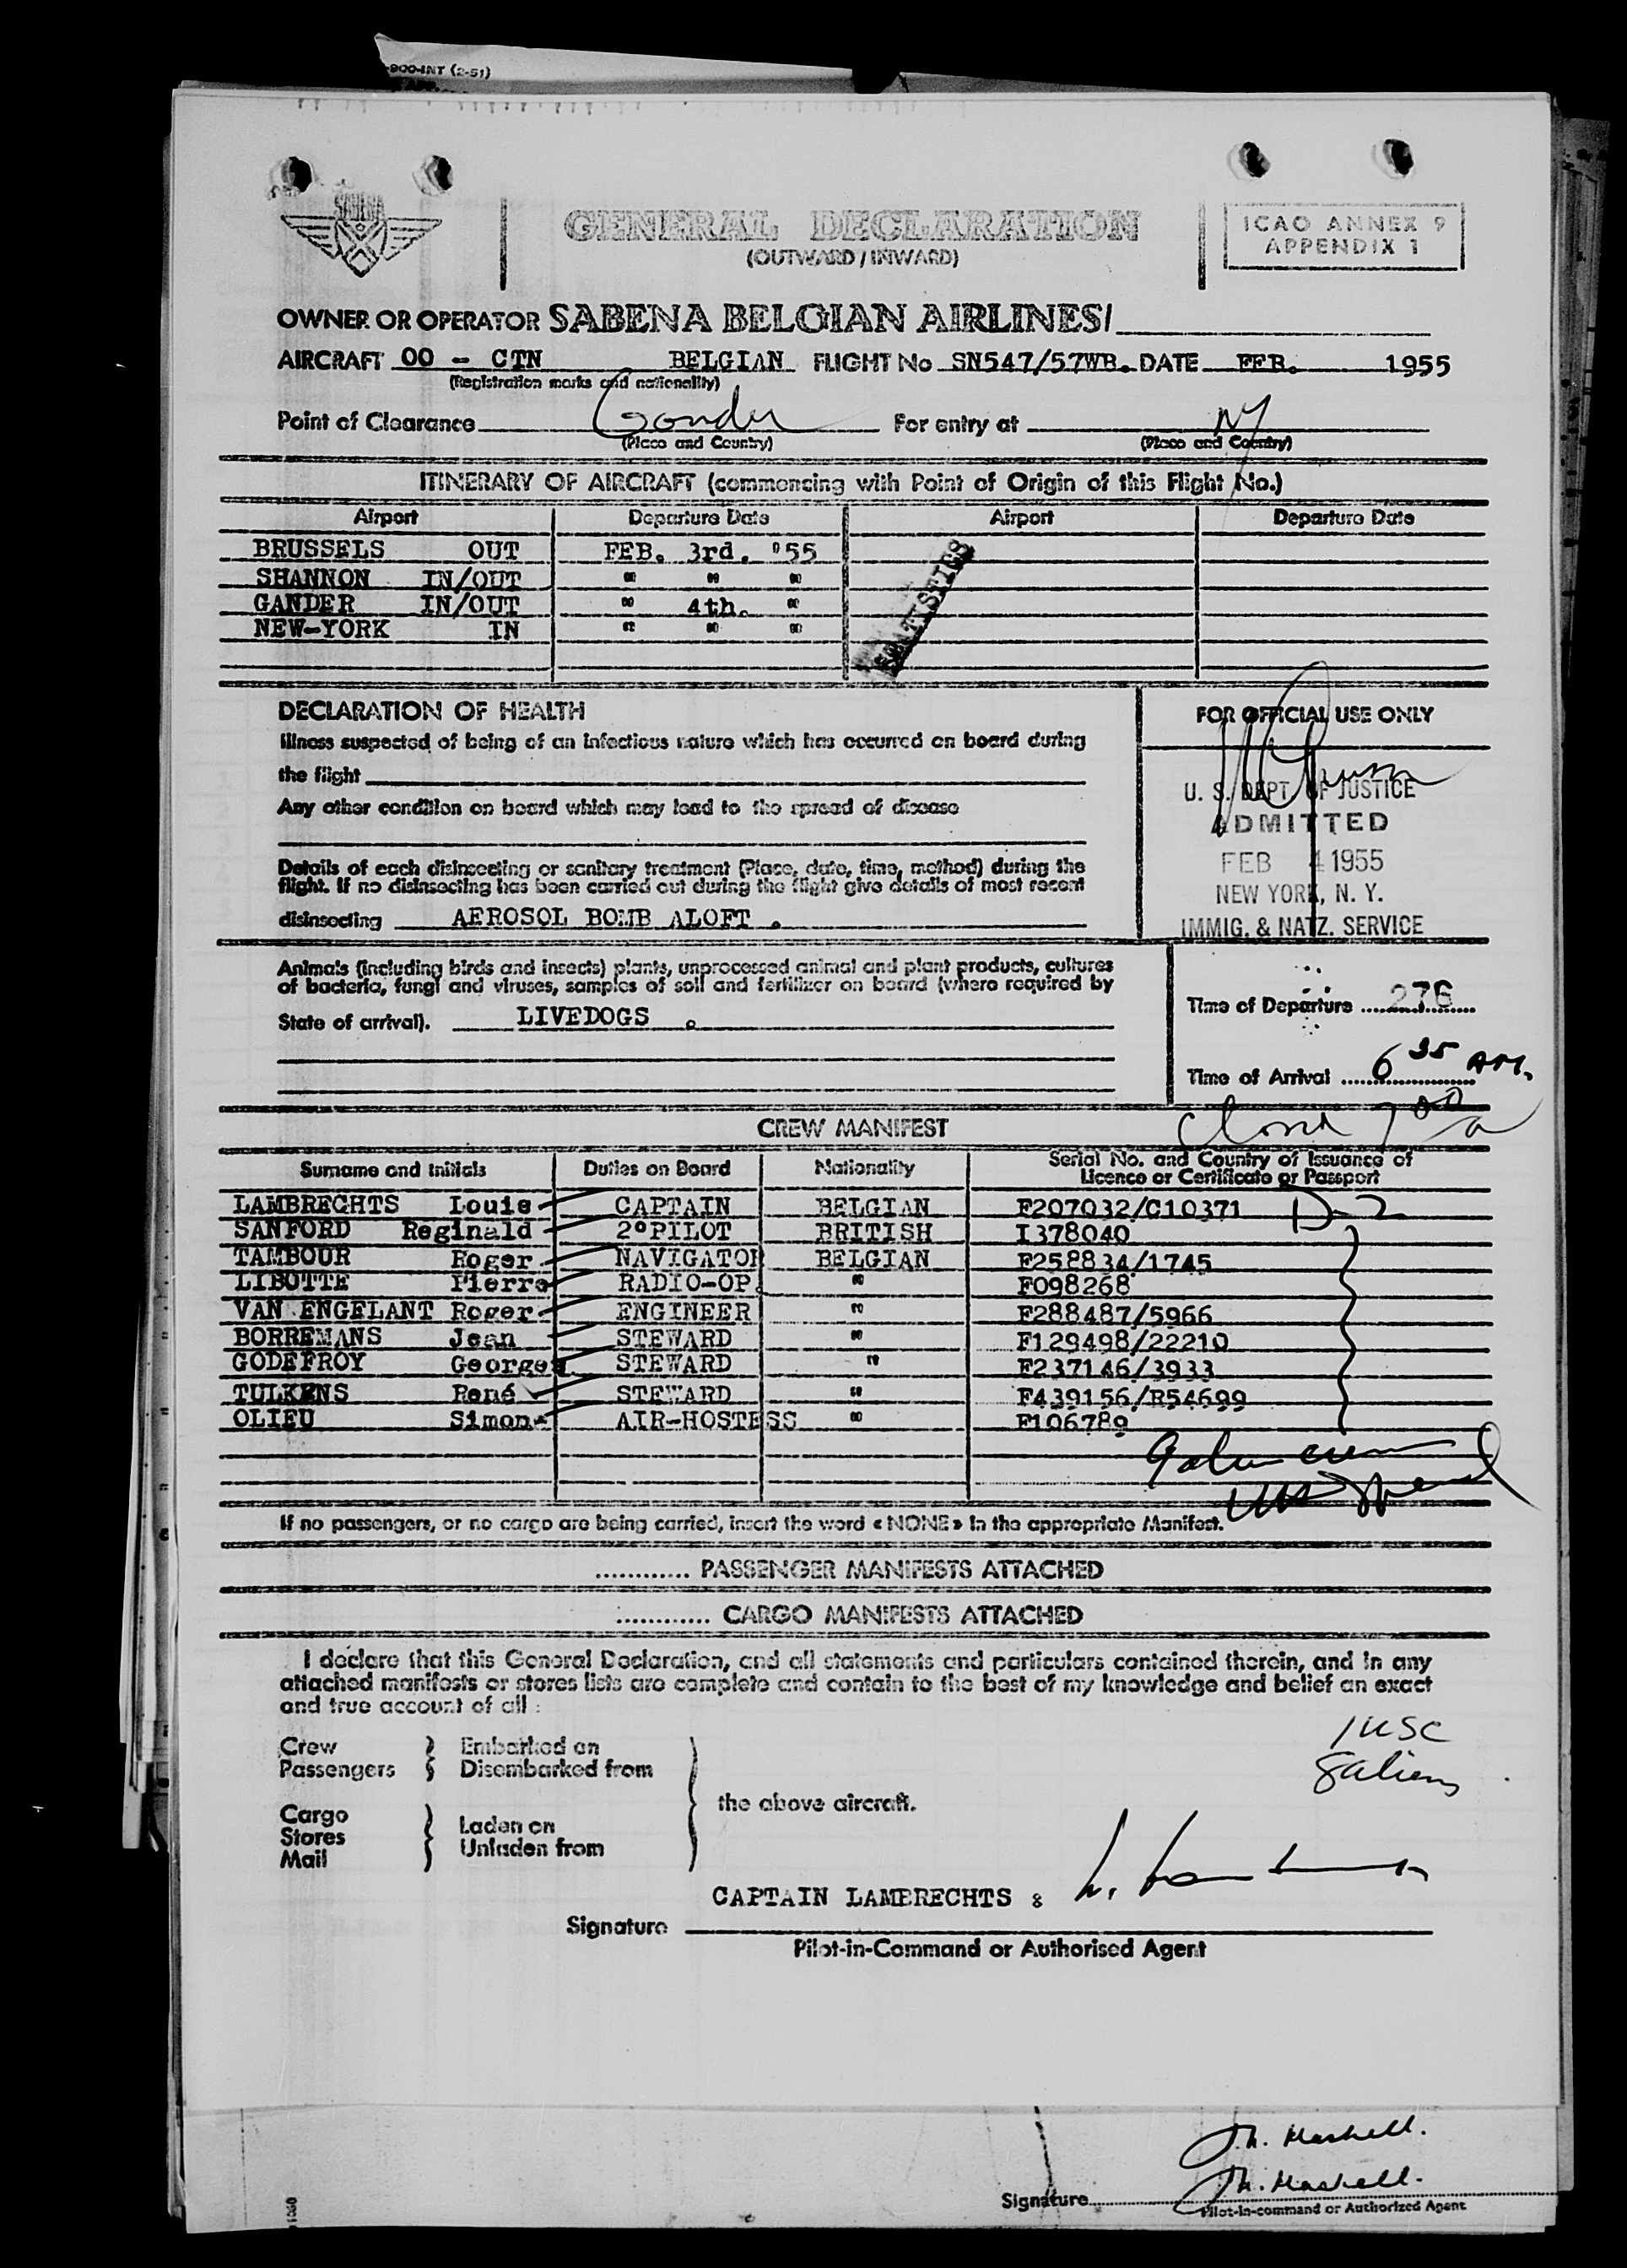 -900-INT (2-51)
SABENA
GENERAL DECLARATION
(OUTWARD / INWARD)
ICAO ANNEX 9
APPENDIX 1
OWNER OR OPERATOR SABENA BELGIAN AIRLINES/
AIRCRAFT OO - CTN BELGIAN FLIGHT No SN547/57WB. DATE FEB. 1955
(Registration marks and nationality)
Point of Clearance Gander For entry at NY
(Place and Country) (Place and Country)
ITINERARY OF AIRCRAFT (commencing with Point of Origin of this Flight No.)
Airport Departure Date Airport Departure Date
BRUSSELS OUT FEB. 3rd. '55
SHANNON IN/OUT " " "
GANDER IN/OUT " 4th. "
NEW-YORK IN " " "
STATISTICS
DECLARATION OF HEALTH
Illness suspected of being of an infectious nature which has occurred on board during
the flight
Any other condition on board which may lead to the spread of disease
Details of each disinsecting or sanitary treatment (Place, date, time, method) during the
flight. If no disinsecting has been carried out during the flight give details of most recent
disinsecting AEROSOL BOMB ALOFT .
FOR OFFICIAL USE ONLY
U. S. DEPT. OF JUSTICE
ADMITTED
FEB 4 1955
NEW YORK, N. Y.
IMMIG. & NATZ. SERVICE
Animals (including birds and insects) plants, unprocessed animal and plant products, cultures
of bacteria, fungi and viruses, samples of soil and fertilizer on board (where required by
State of arrival). LIVEDOGS .
Time of Departure 276
Time of Arrival 6 35 AM.
7 00 a
CREW MANIFEST
Surname and Initials Duties on Board Nationality Serial No. and Country of Issuance of
Licence or Certificate or Passport
LAMBRECHTS Louis CAPTAIN BELGIAN F207032/C10371 D-2
SANFORD Reginald 2°PILOT BRITISH I378040
TAMBOUR Roger NAVIGATOR BELGIAN F258834/1745
LIBOTTE Pierre RADIO-OP. " F098268
VAN ENGELANT Roger ENGINEER " F288487/5966
BORREMANS Jean STEWARD " F129498/22210
GODEFROY Georges STEWARD " F237146/3933
TULKENS René STEWARD " F439156/R54699
OLIEU Simone AIR-HOSTESS " F106789
If no passengers, or no cargo are being carried, insert the word « NONE » in the appropriate Manifest.
............ PASSENGER MANIFESTS ATTACHED
............ CARGO MANIFESTS ATTACHED
I declare that this General Declaration, and all statements and particulars contained therein, and in any
attached manifests or stores lists are complete and contain to the best of my knowledge and belief an exact
and true account of all :
1 USC
8 aliens
Crew Embarked on
Passengers Disembarked from
the above aircraft.
Cargo Laden on
Stores Unladen from
Mail
CAPTAIN LAMBRECHTS :
Signature
Pilot-in-Command or Authorised Agent
Signature
Pilot-in-command or Authorized Agent